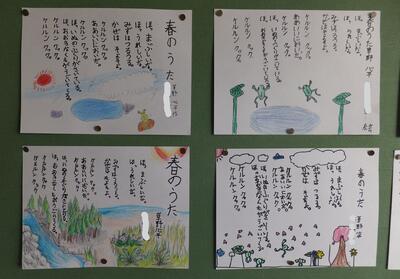 春のうた
草野心平
ほっ まぶしいな。
ほっ うれしいな。
みずは つるつる。
かぜは そよそよ。
ケルルン クック。
ああいいにおいだ。
ケルルン クック。
ほっ いぬのふぐりがさいている。
ほっ おおきなくもがうごいてくる。
ケルルン クック。
ケルルン クック。
春のうた 草野心平
ほっ まぶしいな。
ほっ うれしいな。
みずは つるつる。
かぜは そよそよ。
ケルルン クック。
ああいいにおいだ。
ケルルン クック。
ほっ いぬのふぐりがさいている。
ほっ おおきなくもがうごいてくる。
ケルルン クック。
ケルルン クック。
春のうた
草野心平
ほっ まぶしいな。
ほっ うれしいな。
みずは つるつる。
かぜは そよそよ。
ケルルン クック。
ああいいにおいだ。
ケルルン クック。
ほっ いぬのふぐりがさいている。
ほっ おおきなくもがうごいてくる。
ケルルン クック。
ケルルン クック。
春のうた
草野心平
ほっ まぶしいな。
ほっ うれしいな。
みずは つるつる。
かぜは そよそよ。
ケルルン クック。
ああいいにおいだ。
ケルルン クック。
ほっ いぬのふぐりがさいている。
ほっ おおきなくもがうごいてくる。
ケルルン クック。
ケルルン クック。